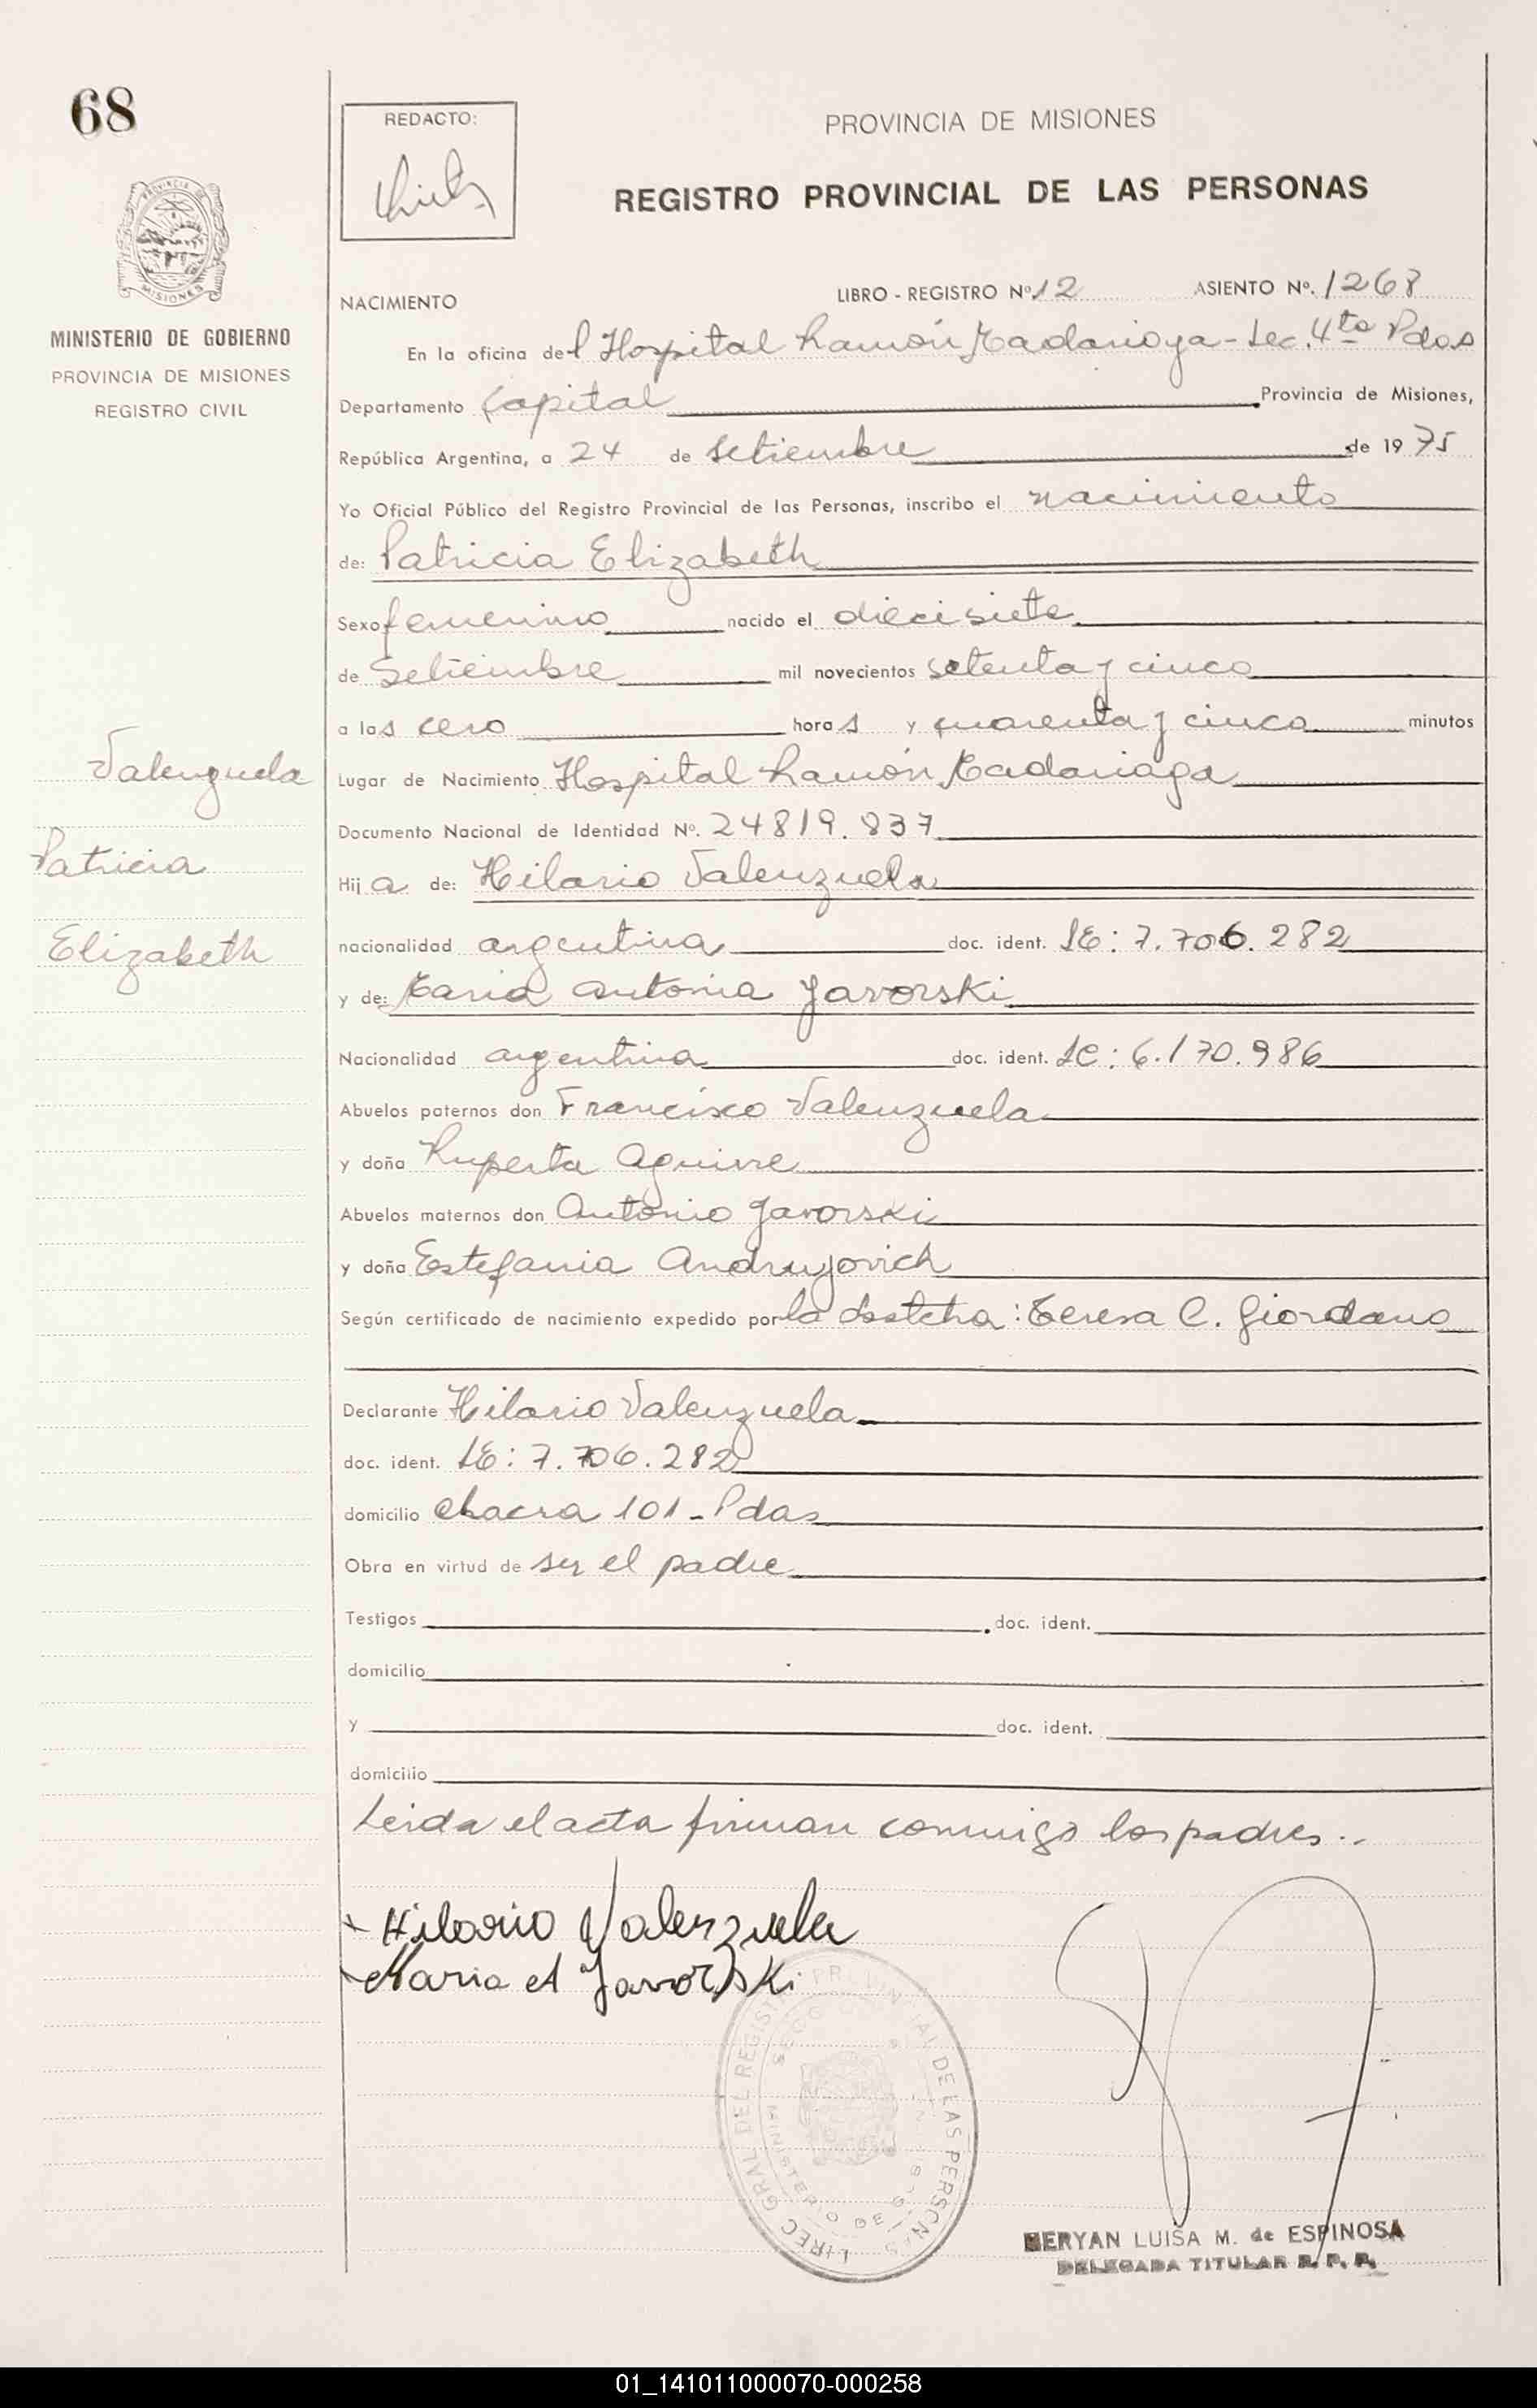 68
REDACTO:
PROVINCIA DE MISIONES
REGISTRO PROVINCIAL DE LAS PERSONAS
MISIONES
MINISTERIO DE GOBIERNO
PROVINCIA DE MISIONES
REGISTRO CIVIL
NACIMIENTO LIBRO - REGISTRO Nº 12 ASIENTO Nº. 1268
En la oficina del Hospital Ramón Madarioga - Sec. 4ta Pdas
Departamento Capital Provincia de Misiones,
República Argentina, a 24 de Setiembre de 1975
Yo Oficial Público del Registro Provincial de las Personas, inscribo el nacimiento
de: Patricia Elizabeth
Sexo femenino nacido el diecisiete
de Setiembre mil novecientos setenta y cinco
a las cero horas y cuarenta y cinco minutos
Lugar de Nacimiento Hospital Ramón Madariaga
Documento Nacional de Identidad Nº. 24819.837
Hija de: Hilario Valenzuela
nacionalidad argentina doc. ident. LE: 7.706.282
y de: Maria Antonia Javorski
Nacionalidad argentina doc. ident. LC: 6.170.986
Abuelos paternos don Francisco Valenzuela
y doña Ruperta Aguirre
Abuelos maternos don Antonio Javorski
y doña Estefania Andrujovich
Según certificado de nacimiento expedido por la Obstetra: Teresa C. Giordano
Declarante Hilario Valenzuela
doc. ident. LE: 7.706.282
domicilio Chacra 101 - Pdas
Obra en virtud de ser el padre
Testigos doc. ident.
domicilio
y doc. ident.
domicilio
Leida el acta firman conmigo los padres..
Valenzuela
Patricia
Elizabeth
Hilario Valenzuela
Maria A Javorski
MERYAN LUISA M. de ESPINOSA
DELEGADA TITULAR R. P. P.
01_141011000070-000258